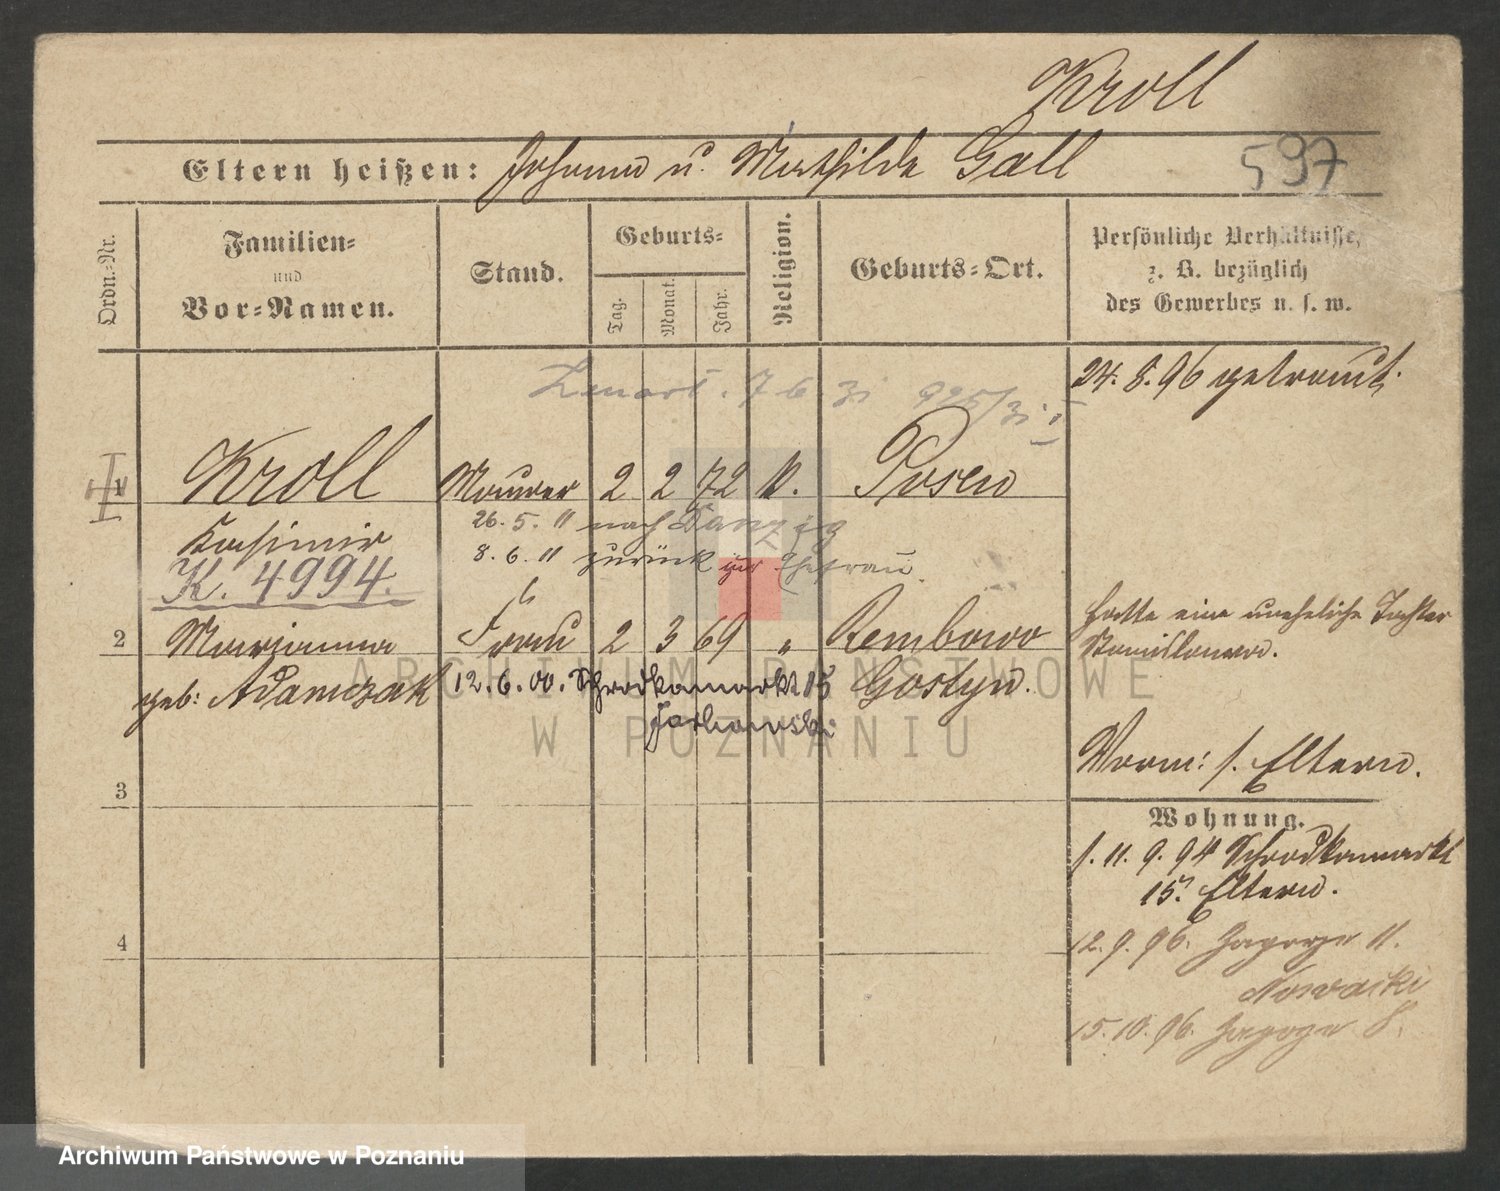 Kroll
Eltern heißen: Johann u. Mathilde Gall
597
Ordn.-Nr.
Familien-
und
Vor-Namen.
Stand.
Geburts-
Tag.
Monat.
Jahr.
Religion.
Geburts-Ort.
Persönliche Verhältnisse,
z. B. bezüglich
des Gewerbes u. s. w.
24. 8. 96 getraut.
Zmarł. 7 6 31 925/31
1 Kroll Maurer 2 2 72 k. Posen
26. 5. 11 nach Danzig
Kasimir
8. 6. 11 zurück zur Ehefrau.
K. 4994.
Hatte eine uneheliche Tochter
2 Marianna Frau 2 3 69 " Rembowo
Stanislawa.
geb: Adamczak 12. 6. 00. Schrodkamarkt 15 Gostyn.
Vorm: s. Eltern.
3
Wohnung.
s. 11. 9. 94 Schrodkamarkt
15. Eltern.
4
12. 9. 96. Zagorze 11.
Nowacki
15. 10. 96. Zagorze 8.
ARCHIWUM PAŃSTWOWE
W POZNANIU
Archiwum Państwowe w Poznaniu